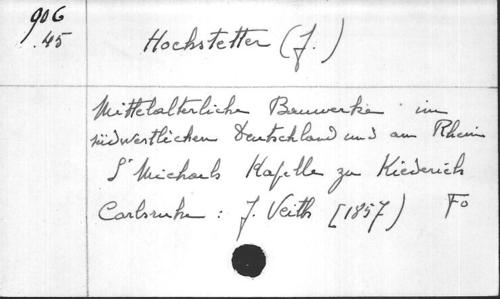 906
.45
Hochstetter (J.)
Mittelalterliche Bauwerke im
südwestlichen Deutschland und am Rhein
St Michaels Kapelle zu Kiederich
Carlsruhe : J. Veith [1857) Fo